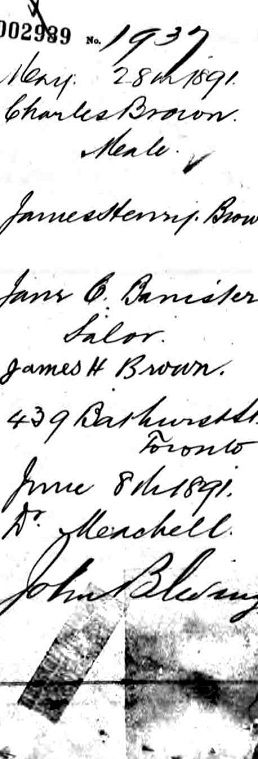 002989 No. 1937
May. 28th 1891.
Charles Brown.
Male.
James Henry. Brow
Jane C. Banister
Salor.
James H Brown.
439 Bathurst St.
Toronto
June 8th 1891.
Dr. Meachell.
John B